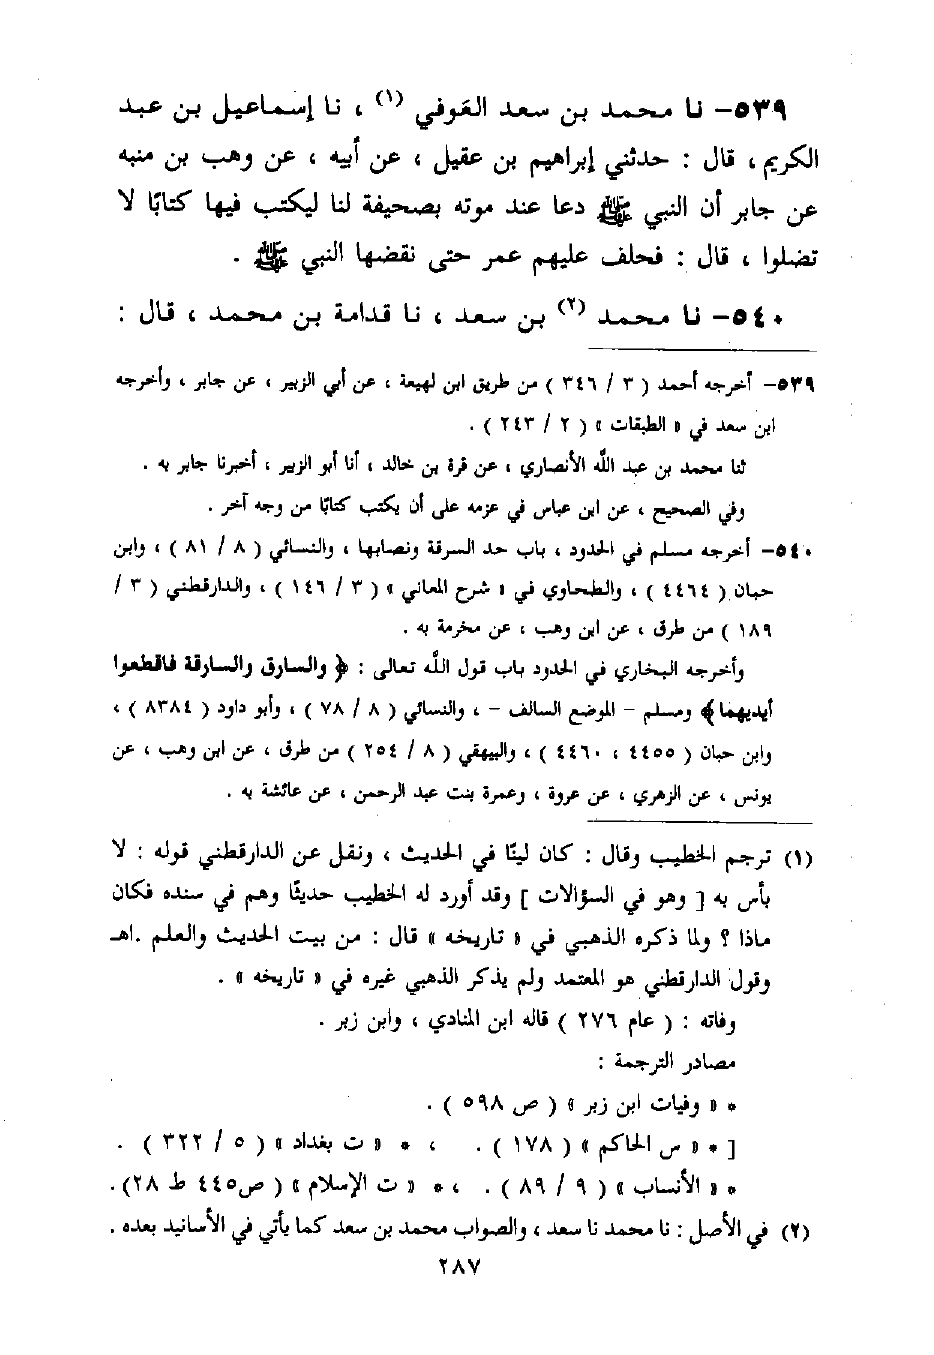 ٥٣٩– نا محمد بن سعد العَوفي (١) ، نا إسماعيل بن عبد
الكريم ، قال : حدثني إبراهيم بن عقيل ، عن أبيه ، عن وهب بن منبه
عن جابر أن النبي ﷺ دعا عند موته بصحيفة لنا ليكتب فيها كتابًا لا
تضلوا ، قال : فحلف عليهم عمر حتى نقضها النبي ﷺ .
٥٤٠– نا محمد (٢) بن سعد ، نا قدامة بن محمد ، قال :
٥٣٩– أخرجه أحمد ( ٣ / ٣٤٦ ) من طريق ابن لهيعة ، عن أبي الزبير ، عن جابر ، وأخرجه
ابن سعد في « الطبقات » ( ٢ / ٢٤٣ ) .
ثنا محمد بن عبد اللَّه الأنصاري ، عن قرة بن خالد ، أنا أبو الزبير ، أخبرنا جابر به .
وفي الصحيح ، عن ابن عباس في عزمه على أن يكتب كتابًا من وجه آخر .
٥٤٠– أخرجه مسلم في الحدود ، باب حد السرقة ونصابها ، والنسائي ( ٨ / ٨١ ) ، وابن
حبان ( ٤٤٦٤ ) ، والطحاوي في « شرح المعاني » ( ٣ / ١٤٦ ) ، والدارقطني ( ٣ /
١٨٩ ) من طرق ، عن ابن وهب ، عن مخرمة به .
وأخرجه البخاري في الحدود باب قول اللَّه تعالى : ﴿ والسارق والسارقة فاقطعوا
أيديهما ﴾ ومسلم – الموضع السالف – ، والنسائي ( ٨ / ٧٨ ) ، وأبو داود ( ٨٣٨٤ ) ،
وابن حبان ( ٤٤٥٥ ، ٤٤٦٠ ) ، والبيهقي ( ٨ / ٢٥٤ ) من طرق ، عن ابن وهب ، عن
يونس ، عن الزهري ، عن عروة ، وعمرة بنت عبد الرحمن ، عن عائشة به .
(١) ترجم الخطيب وقال : كان لينًا في الحديث ، ونقل عن الدارقطني قوله : لا
بأس به [ وهو في السؤالات ] وقد أورد له الخطيب حديثًا وهم في سنده فكان
ماذا ؟ ولما ذكره الذهبي في « تاريخه » قال : من بيت الحديث والعلم .اهـ
وقول الدارقطني هو المعتمد ولم يذكر الذهبي غيره في « تاريخه » .
وفاته : ( عام ٢٧٦ ) قاله ابن المنادي ، وابن زبر .
مصادر الترجمة :
* « وفيات ابن زبر » ( ص ٥٩٨ ) .
[ * « س الحاكم » ( ١٧٨ ) . ، * « ت بغداد » ( ٥ / ٣٢٢ ) .
* « الأنساب » ( ٩ / ٨٩ ) . ، * « ت الإسلام » ( ص٤٤٥ ط ٢٨).
(٢) في الأصل : نا محمد نا سعد ، والصواب محمد بن سعد كما يأتي في الأسانيد بعده .
٢٨٧